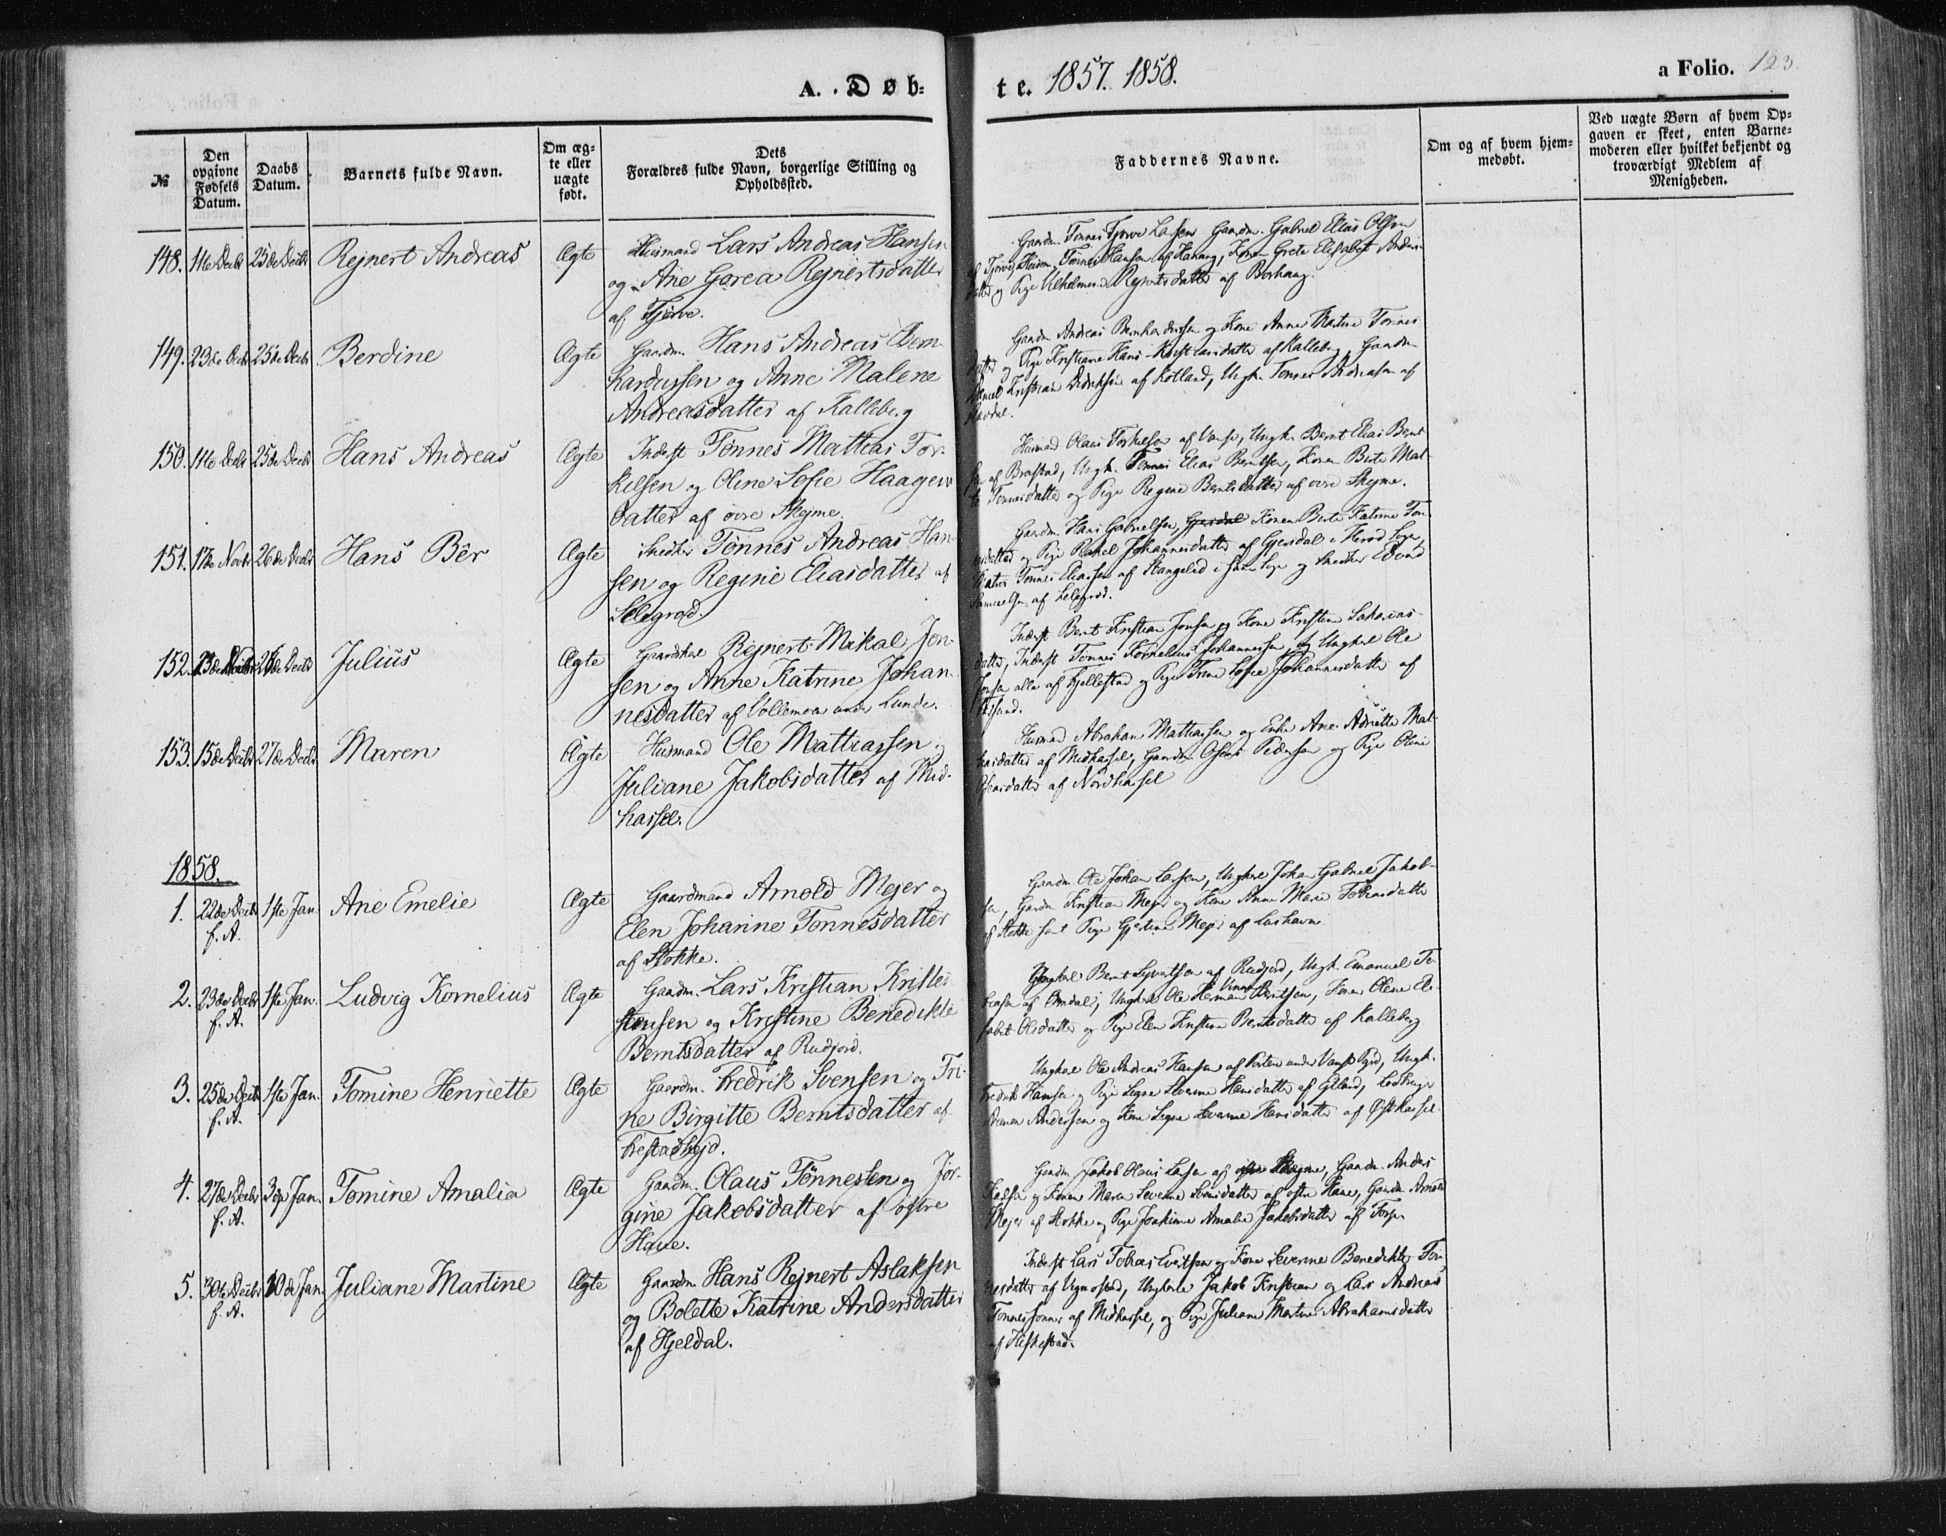 A. Døb=
te. 1857. 1858.
a Folio. 123.
№
Den opgivne Fødsels Datum.
Daabs Datum.
Barnets fulde Navn.
Om æg-te eller uægte født.
Dets Forældres fulde Navn, borgerlige Stilling og Opholdssted.
Faddernes Navne.
Om og af hvem hjem-medøbt.
Ved uægte Børn af hvem Op-gaven er skeet, enten Barne-moderen eller hvilket bekjendt og troværdigt Medlem af Menigheden.
148. 11te Decbr 25de Decbr Rejnert Andreas Ægte Husmand Lars Andreas Hansen
og Ane Gorea Rejnertsdatter
af Tjørve.
Gaardm. Tønnes Tjørve Larsen Gaardm. Gabriel Elias Olsen
af Tjørve, Tønnes Hansen af Hanang, Konen Grete Elisabet Anders-
datter og Pige Vilhelmine Rejnertsdatter af Borhaug.
149. 23de Decbr 25de Decbr Berdine Ægte Gaardm. Hans Andreas Bern-
hardussen og Anne Malene
Andreasdatter af Kalleberg
Gaardm. Andreas Bernhardussen og Kone Anne Martine Tønnes-
datter og Pige Kristiane Hans Kristiansdatter af Kalleberg, Gaardm.
Daniel Kristian Didriksen af Kolland, Ungk. Tønnes Andreasen af
150. 11te Decbr 25de Decbr Hans Andreas Ægte Inderst Tønnes Mattias Tor-
kelsen og Oline Sofie Haagens-
datter af øvre Skejme.
Husmand Olaus Torkelsen af Vanse, Ungk. Bernt Elias Bernt-
sen af Brastad, Ungk. Tønnes Elias Berntsen, Konen Berte Mal-
ne Tønnesdatter og Pige Regine Berntsdatter af øvre Skejme.
151. 17de Novbr 26de Decbr Hans Bêr Ægte Snedker Tønnes Andreas Han-
sen og Regine Eliasdatter af
Selegrød.
Gaardm. Hans Gabrielsen, Gjersdal Konen Berte Katrine Tøn-
nesdatter og Pige Rakel Johannesdatter af Gjersdal i Herød Sogn,
Tønnes Eliassen af Stangeland i samme Sogn og Snedker Edvard
Samuelsen af Selegrød.
152. 13de Decbr 26de Decbr Julius Ægte Gaardskarl Rejnert Mikal Jon-
sen og Anne Katrine Johan-
nesdatter af Vollemoen under Lunde.
Inderst Bernt Kristian Jonsen og Kone Kristine Sakarias-
datter, Inderst Tønnes Kornelius Johannessen, og Ungkarl Ole
Jonsen alle af Kjellestad og Pige Trine Sofie Johannesdatter af
153. 15de Decbr 27de Decbr Maren Ægte Husmand Ole Mattiassen og
Juliane Jakobsdatter af Mid-
hassel.
Husmand Abraham Mattiassen og Enke Ane Adriette Mat-
tiasdatter af Midhassel, Gaardm. Osmund Pedersen og Pige Oline
Osmundsdatter af Nordhassel
1858.
1. 22de Decbr f. A. 1ste Jan. Ane Emelie Ægte Gaardmand Arnold Mejer og
Elen Johanine Tønnesdatter
af Stokke.
Gaardm. Ole Johan Larsen, Ungkarl Johan Gabriel Jakob-
sen, Gaardm. Kristian Mejer og Kone Anne Marie Tobiasdatter
af Stokke samt Pige Gjertine Mejer af Lushavn
2. 23de Decbr f. A. 1ste Jan. Ludvig Kornelius Ægte Gaardm. Lars Kristian Kristen-
stensen og Kristine Benedikte
Berntsdatter af Rudjord.
Ungkarl Bernt Syvertsen af Rudjord, Ungk. Emanuel To-
biassen af Omdal, Ungkarl Ole Herman Berntsen, Konen Olene Eli-
sabet Olsdatter og Pige Elen Kristine Berntsdatter af Kalleberg
3. 25de Decbr f. A. 1ste Jan. Tomine Henriette Ægte Gaardm. Fredrik Svensen og Tri-
ne Birgitte Berntsdatter af
Frestadbejd.
Ungkarl Ole Andreas Hansen af Porten under Vanse Pgrd, Ungk.
Fredrik Hansen og Pige Signe Severine Hansdatter af Elland, Lodtager
Andersen og Kone Signe Severine Hansdatter af Østhassel.
4. 27de Decbr f. A. 3die Jan. Tomine Amalia Ægte Gaardm. Olaus Tønnessen og Jør-
gine Jakobsdatter af østre
Haue.
Gaardm. Jakob Olaus Larsen af øvre Skejme, Gaardm. Anders
Karlsen og Konen Maren Severine Svensdatter af østre Haue, Gaardm. Arnold
Mejer af Stokke og Pige Joakime Amalie Jakobsdatter af Torp
5. 30te Decbr f. A. 10de Jan. Juliane Martine Ægte Gaardm. Hans Rejnert Aslaksen
og Bolette Katrine Andersdatter
af Hjeldal.
Inderst Lars Tobias Evertsen og Kone Severine Benedikte Tøn-
nesdatter af Vignestad, Ungkarle Jakob Kristian og Lars Andreas
Tønnessønner af Midhassel, og Pige Juliane Martine Abrahamsdatter
af Heskestad.